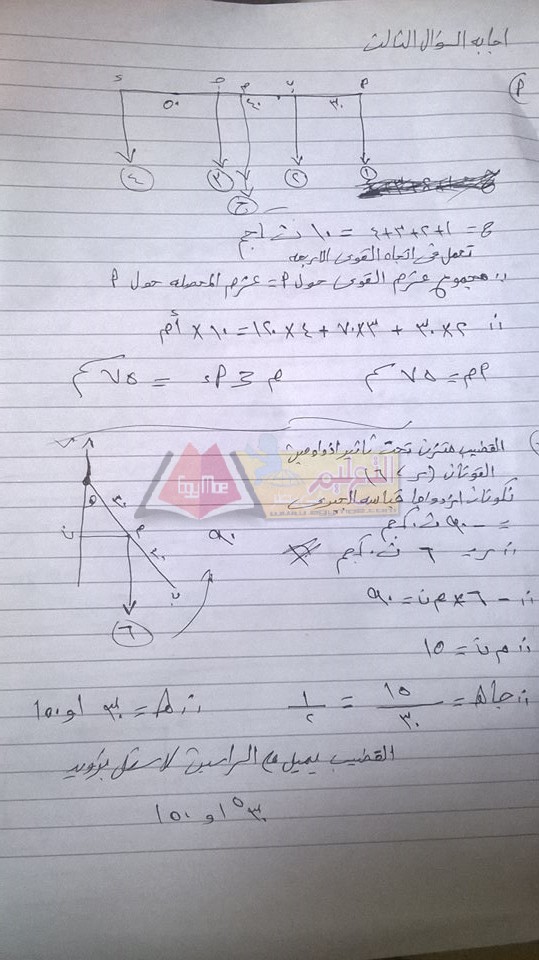 اجابه السؤال الثالث
أ
ء ٥٠ حـ م ٤٠ ب ٣٠ أ
٤ ٣ ح ٢ ١
ح = ١+٢+٣+٤ = ١٠ ث جم
تعمل فى اتجاه القوى الاربعه
∵ مجموع عزوم القوى حول أ = عزم المحصله حول أ
∴ ٢×٣٠ + ٣×٧٠ + ٤×١٢٠ = ١٠ × أم
أم = ٧٥ سم م ∈ أء = ٧٥ سم
القضيب متزن تحت تأثير ازدواجين
القوتان (ر، ٦)
تكونان ازدواجا قياسه الجبرى
= −٩٠ ث.كجم
∴ ر = ٦ ث.كجم
∴ −٦×م ن = ٩٠
∴ م ن = ١٥
∴ حاهـ = ١٥/٣٠ = ١/٢ ∴ هـ = ٣٠ او ١٥٠
القضيب يميل مع الراسى لاسفل بزاويه
٣٠° او ١٥٠
ر هـ ٣٠ ن م ٣٠ ب ٦ ٩٠
EgyMoe
التعليم